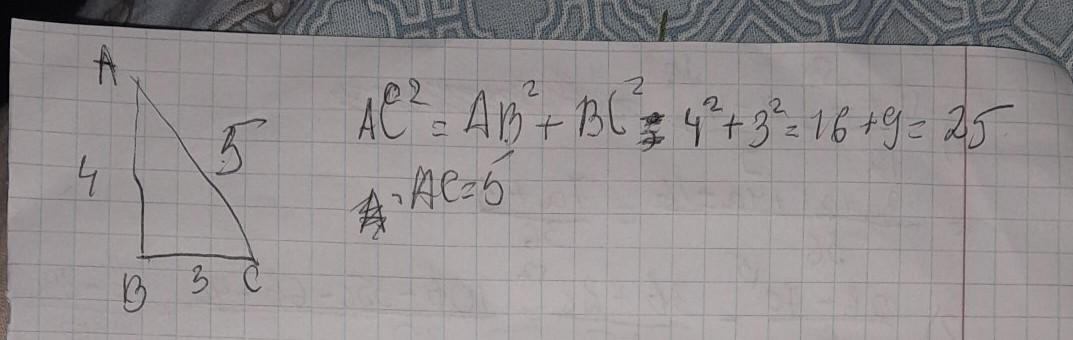 A
5
4
B 3 C
AC² = AB² + BC² = 4² + 3² = 16 + 9 = 25
AC = 5